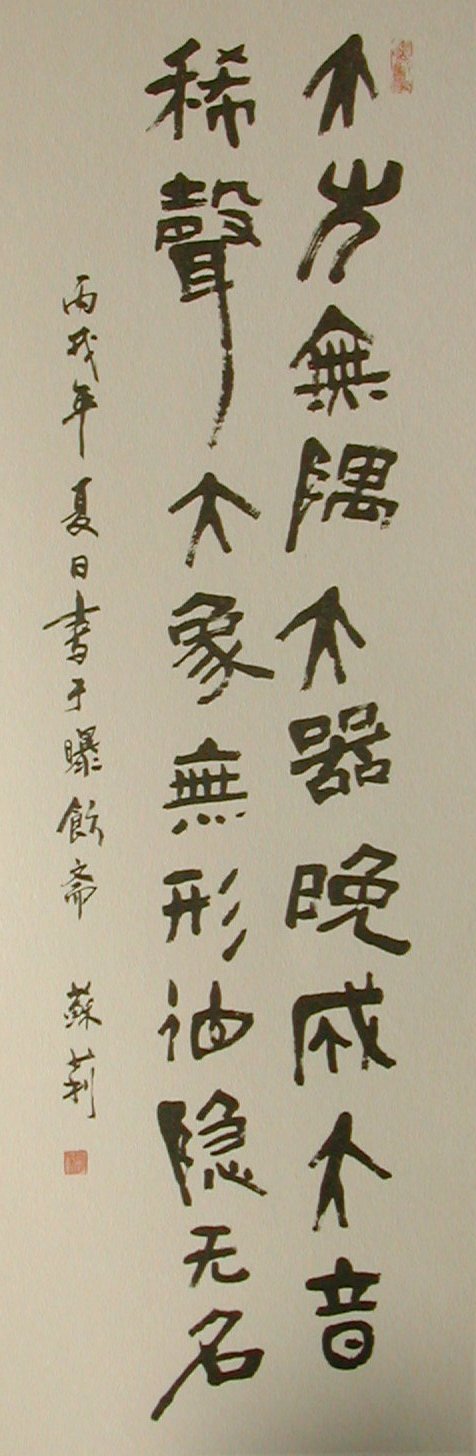 大方無隅大器晚成大音
稀聲大象無形道隐无名
丙戌年夏日書于曝飲斋 蘇莉